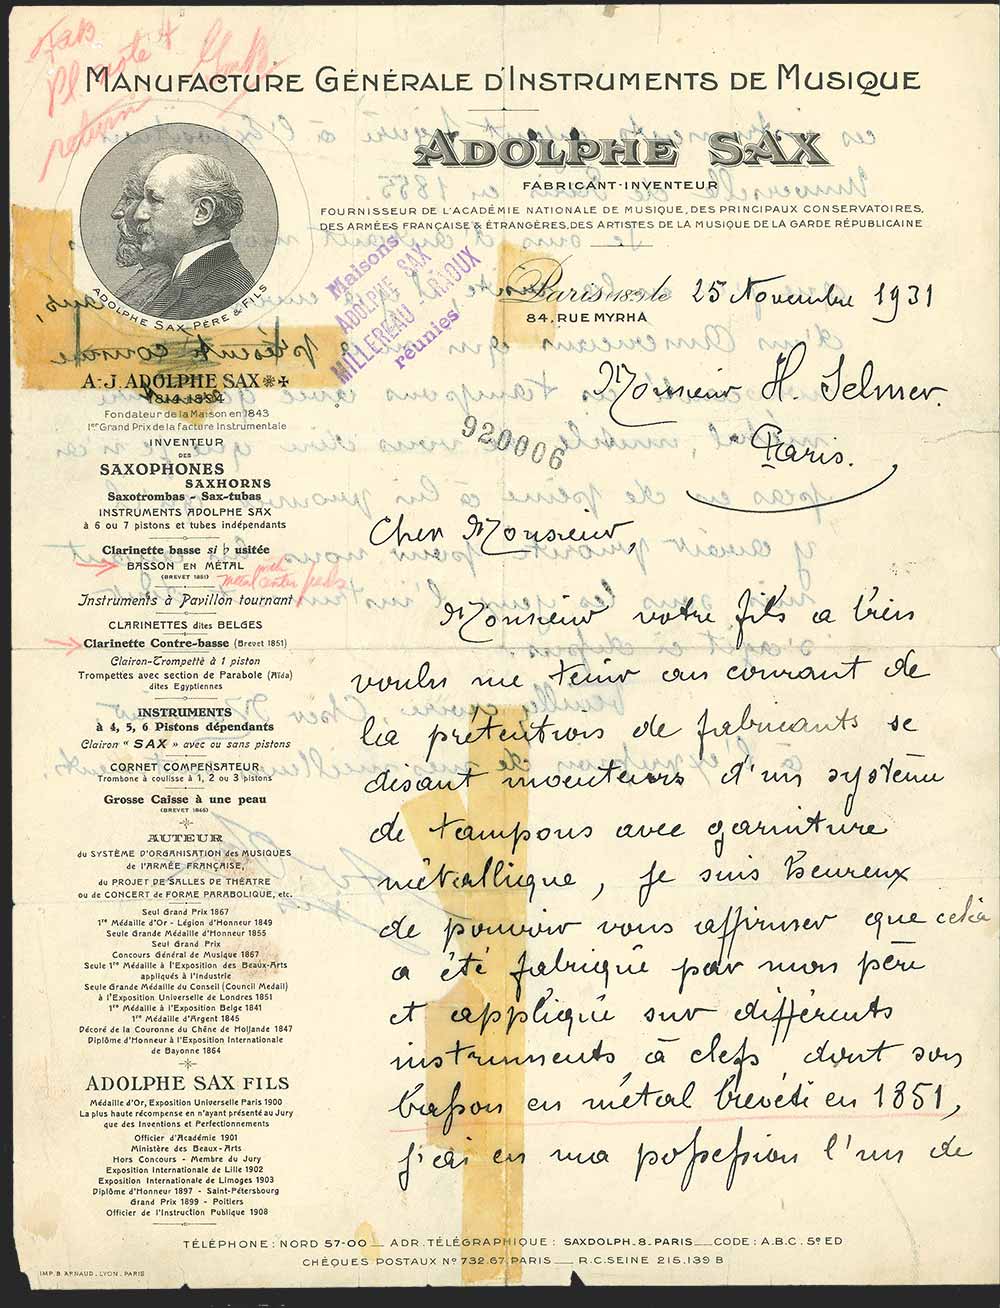 MANUFACTURE GÉNÉRALE D'INSTRUMENTS DE MUSIQUE
ADOLPHE SAX
FABRICANT-INVENTEUR
FOURNISSEUR DE L'ACADÉMIE NATIONALE DE MUSIQUE, DES PRINCIPAUX CONSERVATOIRES,
DES ARMÉES FRANÇAISE & ÉTRANGÈRES, DES ARTISTES DE LA MUSIQUE DE LA GARDE RÉPUBLICAINE
return
ADOLPHE SAX PÈRE & FILS
Maisons
ADOLPHE SAX
MILLEREAU
réunies
Paris, le 25 Novembre 1931
84, RUE MYRHA
Monsieur H. Selmer.
Paris.
920006
A.-J. ADOLPHE SAX
1814-1894
Fondateur de la Maison en 1843
1er Grand Prix de la facture Instrumentale
INVENTEUR
DES
SAXOPHONES
SAXHORNS
Saxotrombas - Sax-tubas
INSTRUMENTS ADOLPHE SAX
à 6 ou 7 pistons et tubes indépendants
Clarinette basse si ♭ usitée
BASSON EN MÉTAL
(BREVET 1851)
with
metal center pads
Instruments à Pavillon tournant
CLARINETTES dites BELGES
Clarinette Contre-basse (Brevet 1851)
Clairon-Trompette à 1 piston
Trompettes avec section de Parabole (Aïda)
dites Egyptiennes
INSTRUMENTS
à 4, 5, 6 Pistons dépendants
Clairon "SAX" avec ou sans pistons
CORNET COMPENSATEUR
Trombone à coulisse à 1, 2 ou 3 pistons
Grosse Caisse à une peau
(BREVET 1846)
AUTEUR
du SYSTÈME D'ORGANISATION des MUSIQUES
de l'ARMÉE FRANÇAISE,
du PROJET DE SALLES DE THÉATRE
ou de CONCERT de FORME PARABOLIQUE, etc.
Seul Grand Prix 1867
1re Médaille d'Or - Légion d'Honneur 1849
Seule Grande Médaille d'Honneur 1855
Seul Grand Prix
Concours Général de Musique 1867
Seule 1re Médaille à l'Exposition des Beaux-Arts
appliqués à l'Industrie
Seule Grande Médaille du Conseil (Council Medal)
à l'Exposition Universelle de Londres 1851
1re Médaille à l'Exposition Belge 1841
1re Médaille d'Argent 1845
Décoré de la Couronne du Chêne de Hollande 1847
Diplôme d'Honneur à l'Exposition Internationale
de Bayonne 1864
ADOLPHE SAX FILS
Médaille d'Or, Exposition Universelle Paris 1900
La plus haute récompense en n'ayant présenté au Jury
que des Inventions et Perfectionnements
Officier d'Académie 1901
Ministère des Beaux-Arts
Hors Concours - Membre du Jury
Exposition Internationale de Lille 1902
Exposition Internationale de Limoges 1903
Diplôme d'Honneur 1897 - Saint-Pétersbourg
Grand Prix 1899 - Poitiers
Officier de l'Instruction Publique 1908
Cher Monsieur,
Monsieur votre fils a bien
voulu me tenir au courant de
la prétention de fabricants se
disant inventeurs d'un système
de tampons avec garniture
métallique, je suis heureux
de pouvoir vous affirmer que cela
a été fabriqué par mon père
et appliqué sur différents
instruments à clefs dont son
basson en métal breveté en 1851,
j'ai en ma possession l'un de
TÉLÉPHONE: NORD 57-00 ADR. TÉLÉGRAPHIQUE: SAXDOLPH. 8. PARIS CODE: A.B.C. 5e ED
CHÈQUES POSTAUX No 732.67. PARIS R.C. SEINE 215.139 B
IMP. B. ARNAUD. LYON. PARIS